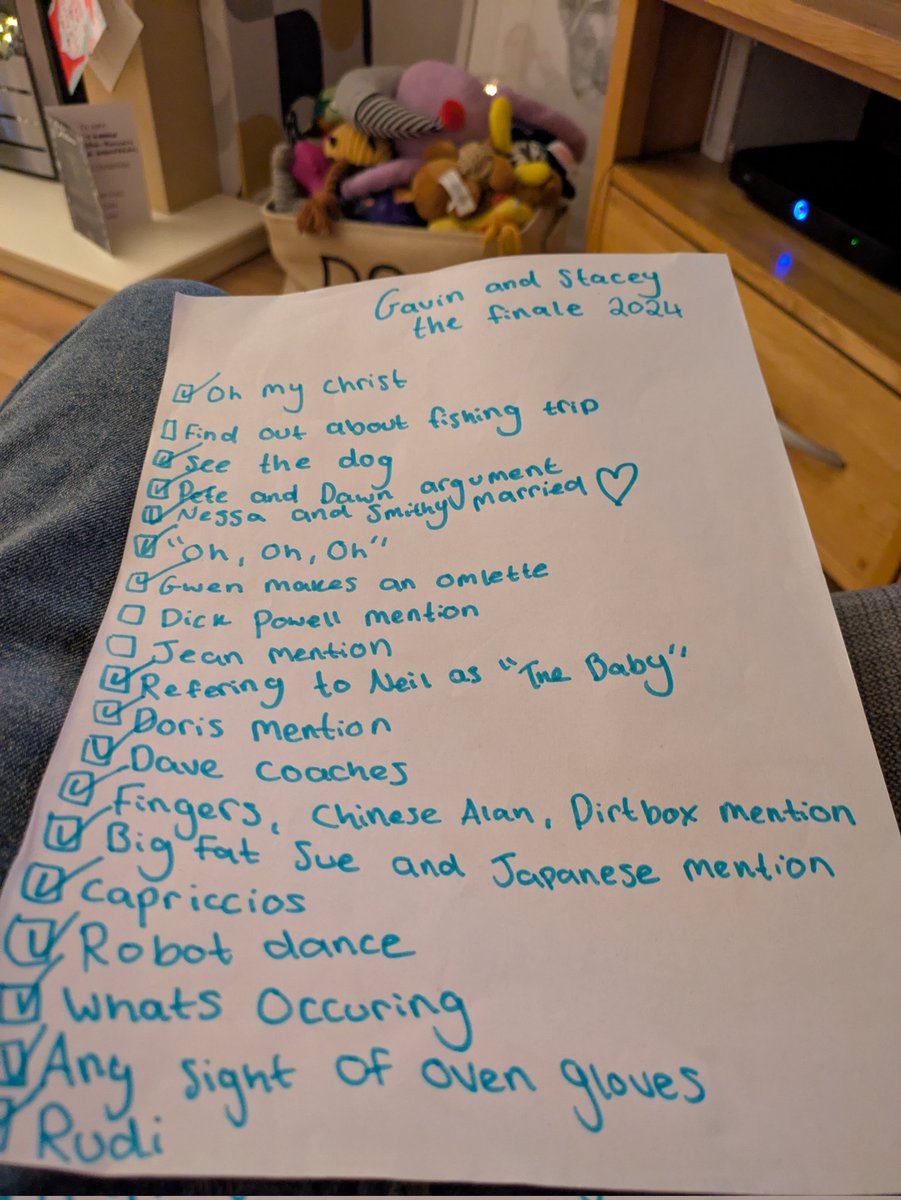 Gavin and Stacey
the finale 2024
Oh my christ
Find out about fishing trip
See the dog
Pete and Dawn argument
Nessa and Smithy married
"Oh, Oh, Oh"
Gwen makes an omlette
Dick Powell mention
Jean mention
Refering to Neil as "The Baby"
Doris mention
Dave coaches
Fingers, Chinese Alan, Dirtbox mention
Big Fat Sue and Japanese mention
Capriccios
Robot dance
Whats Occuring
Any sight of oven gloves
Rudi